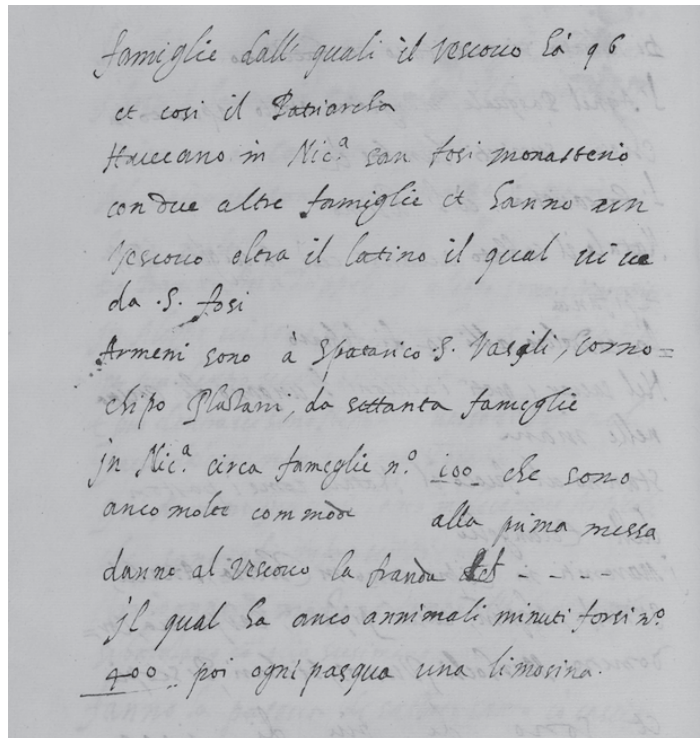 famiglie dall quali il Vescouo hà 96
et cosi il Patriarcha
Haueano in Nic.ª san fosi monasterio
con due altre famiglie et hanno un
Vescouo oltra il latino il qual uiue
da .S. fosi
Armeni sono à Spatarico .S. Vasili, Corno=
chipo Platani, da settanta fameglie
jn Nic.ª circa fameglie n.º 100 che sono
anco molte commode alla prima messa
danno al Vescouo la
jl qual ha anco annimali minuti forsi nº
400 .. poi ogni pasqua una limosina.